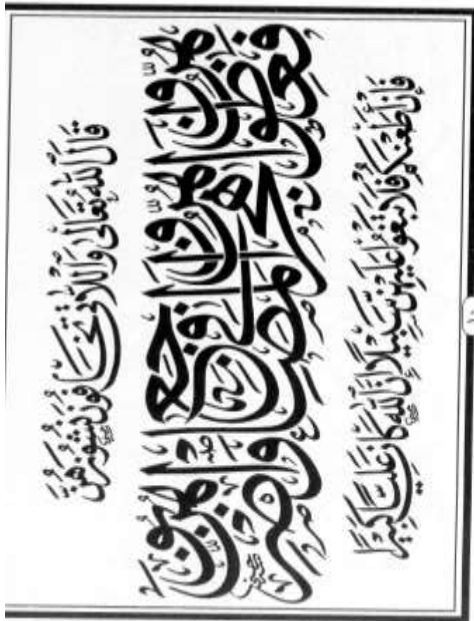 قَالَ اللهُ تَعَالَى وَاللَّاتِي تَخَافُونَ نُشُوزَهُنَّ
فَعِظُوهُنَّ وَاهْجُرُوهُنَّ فِي الْمَضَاجِعِ وَاضْرِبُوهُنَّ
فَإِنْ أَطَعْنَكُمْ فَلَا تَبْغُوا عَلَيْهِنَّ سَبِيلًا إِنَّ اللهَ كَانَ عَلِيًّا كَبِيرًا